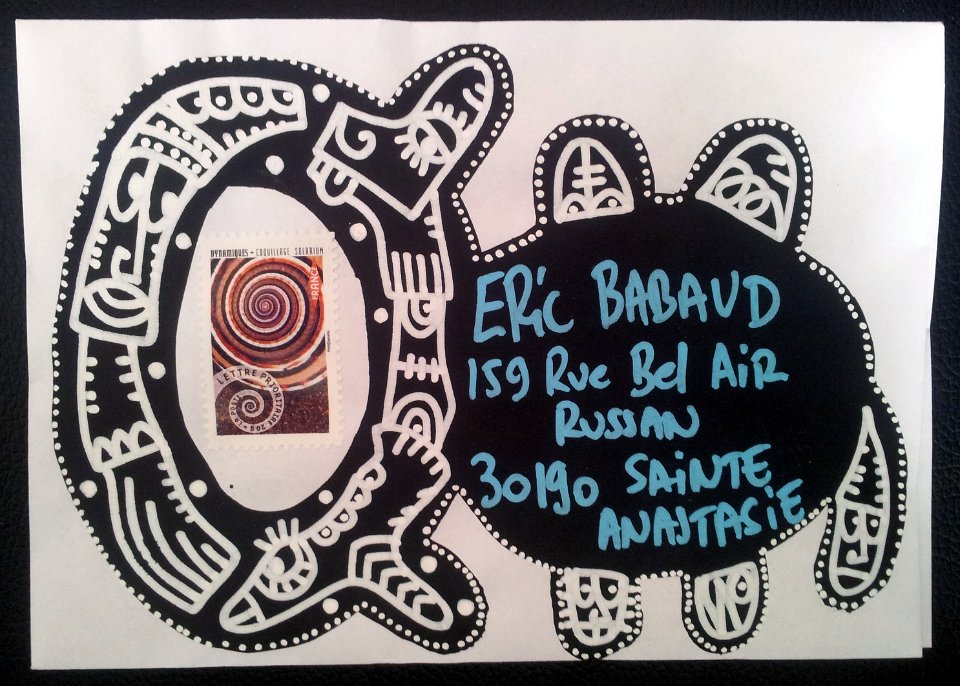 DYNAMIQUES - COQUILLAGE SOLARIUM
FRANCE
LETTRE PRIORITAIRE 20g - LA POSTE
ERiC BABAUD
159 Rue Bel AiR
RUSSAN
30190 SAiNTE
ANASTASiE